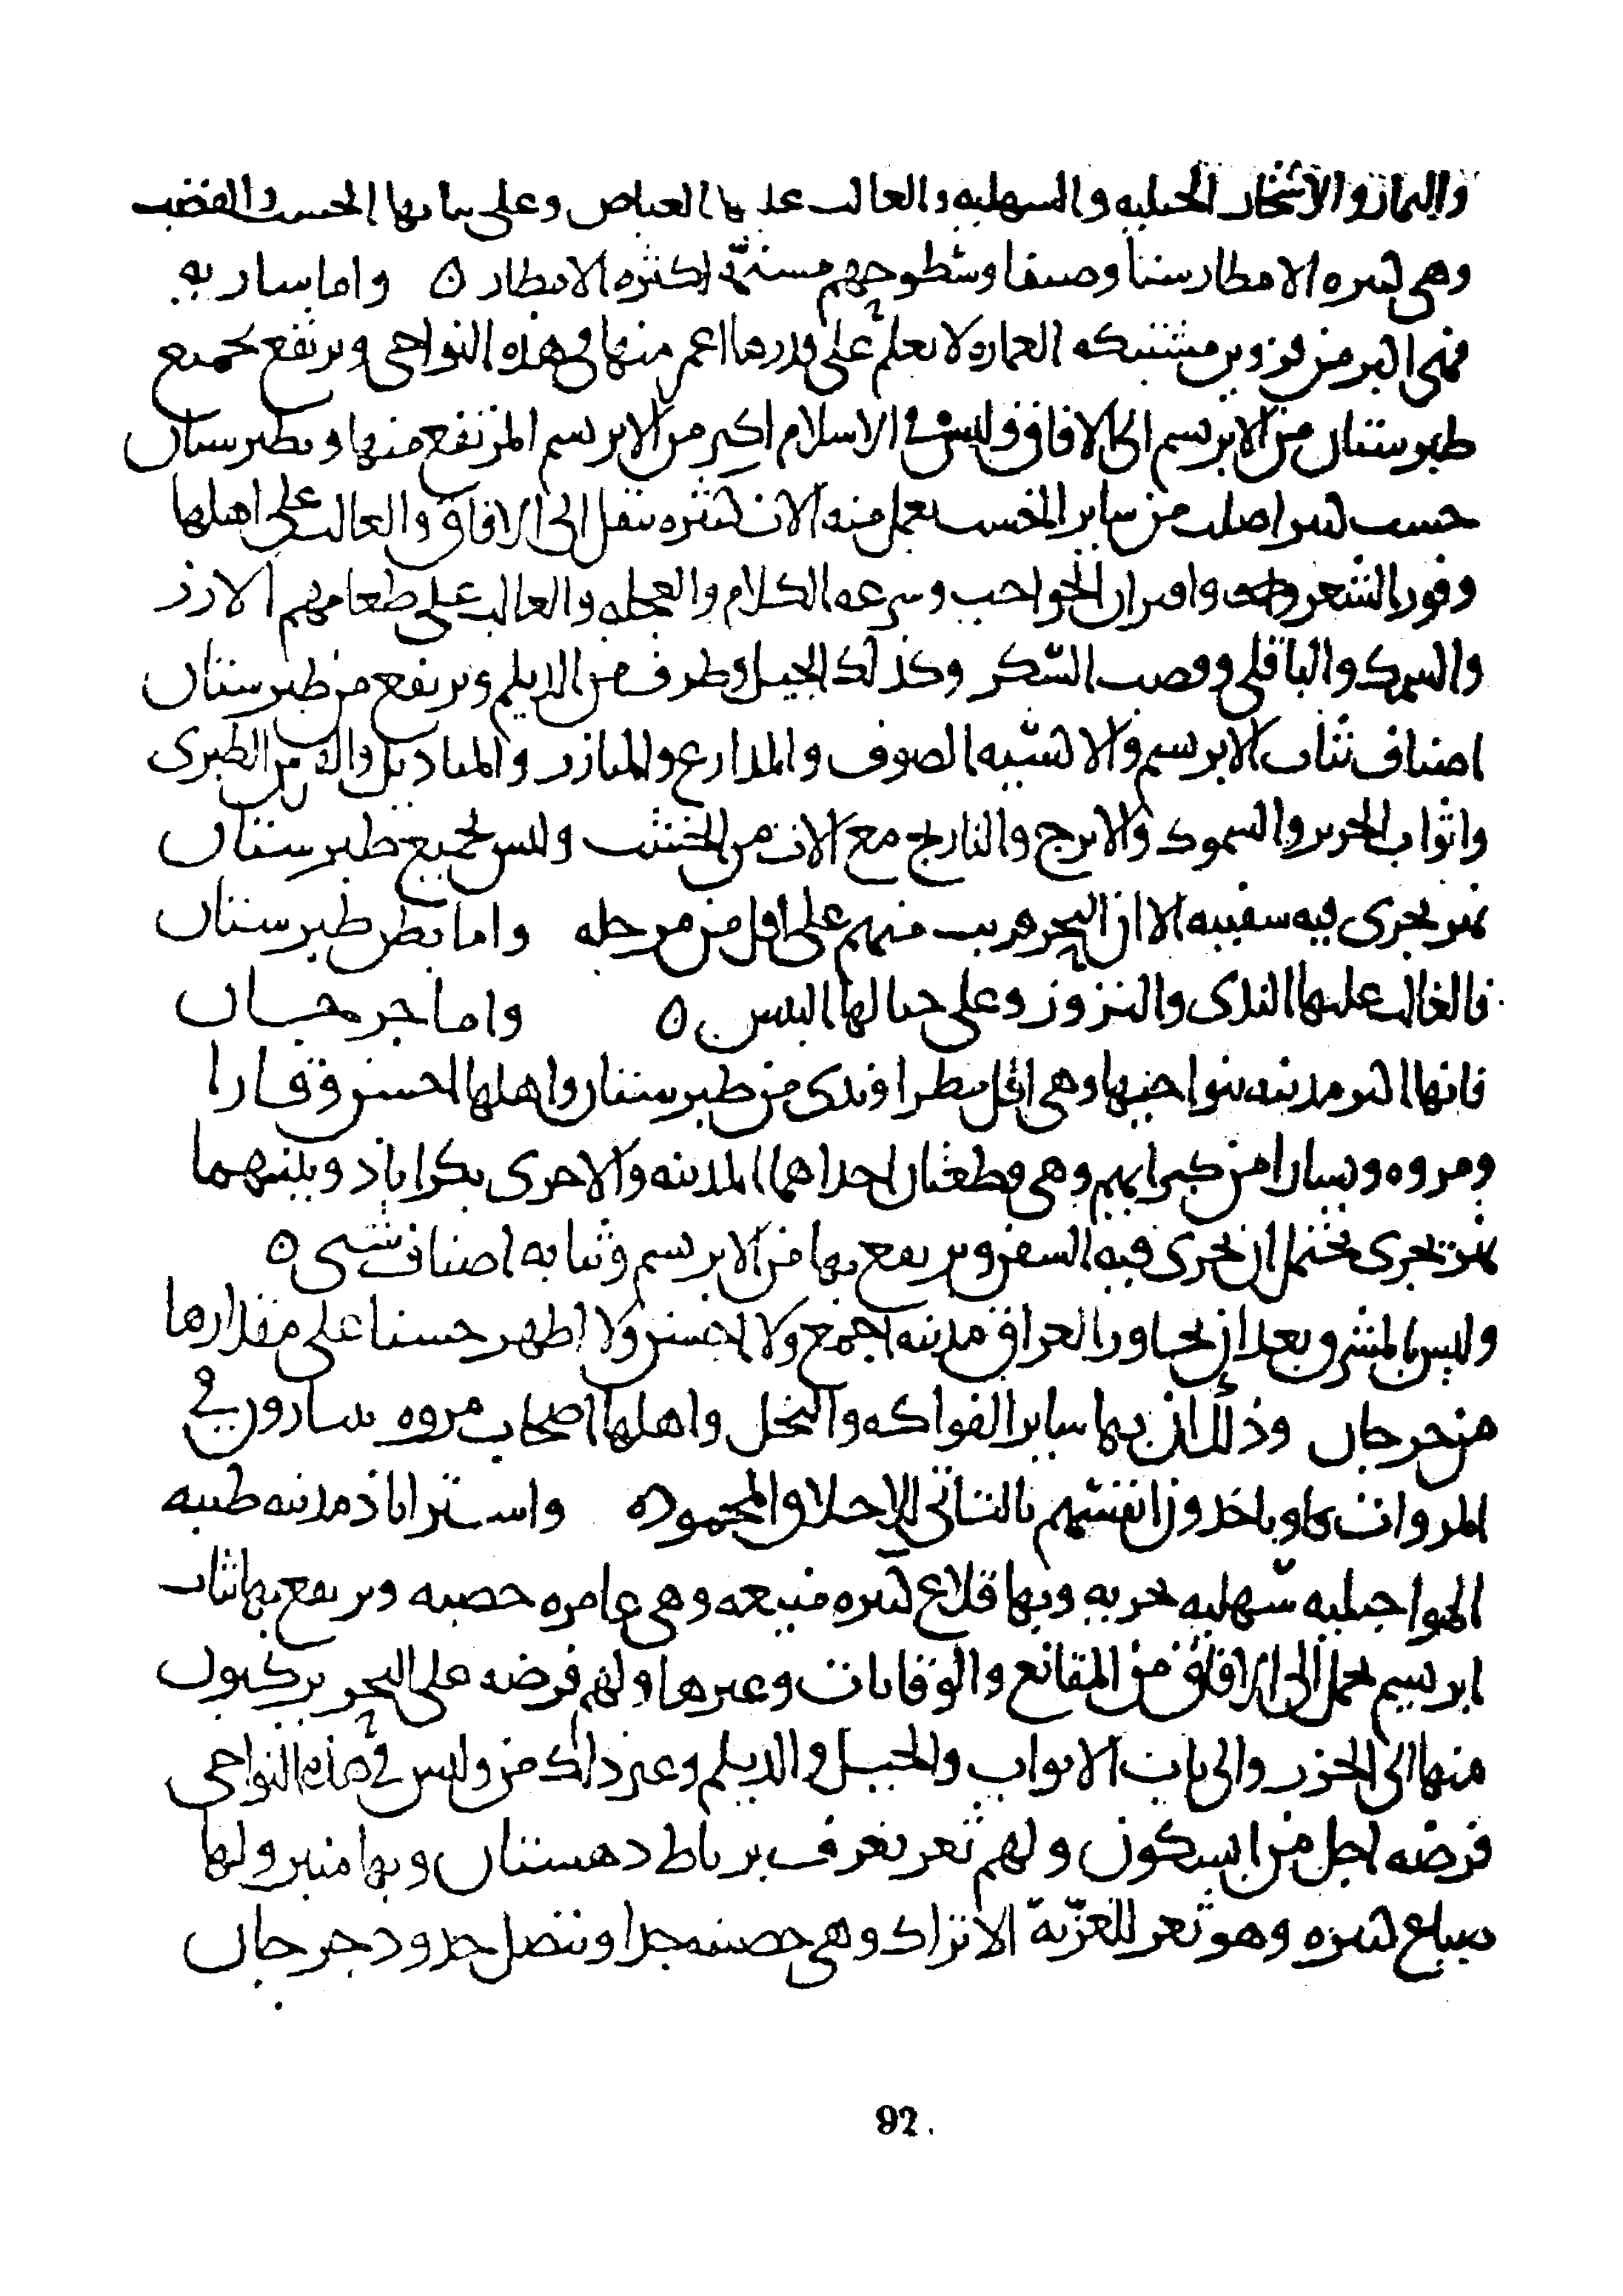 والثمار والاشجار الجبليه والسهليه والغالب عليها الغياض وعلى بنائها الخشب والقضب
وهى كثيره الامطار شتا وصيفا وسطوحهم مسنمة لكثره الامطار ٥ واما ساريه
فهى اكبر من قزوين مشتبكه العماره لا يعلم على قدرها اعمر منها فى هذه النواحى ويرتفع بجميع
طبرستان من الابريسم الى الافاق وليس فى الاسلام اكبر من الابريسم المرتفع منها وبطبرستان
خشب كثير اصلب من ساير الخشب يعمل منه الات كثيره تنقل الى الافاق والغالب على اهلها
وفور الشعر واقتران الحواجب وسرعه الكلام والعجله والغالب على طعامهم الارز
والسمك والباقلى وقصب السكر وكذلك الجيل وطرف من الديلم ويرتفع من طبرستان
اصناف ثياب الابريسم والاكسيه الصوف والمدارع والميازر والمناديل الطبرى
واثواب الحرير والسموك والاترج والنارنج مع الات من الخشب وليس لجميع طبرستان
نهر يجرى فيه سفينه الا ان البحر قريب منهم على اقل من مرحله واما بطن طبرستان
فالغالب عليها الندى والنزوز وعلى جبالها اليبس ٥ واما جرجان
فانها اكبر مدينه بنواحيها وهى اقل مطرا وندى من طبرستان واهلها احسن وقارا
ومروه ويسارا من كبرايهم وهى قطعتان احداهما المدينه والاخرى بكراباذ وبينهما
نهر يجرى يحتمل ان يجرى فيه السفن ويرتفع بها من الابريسم وثيابه اصناف شتى ٥
وليس بالمشرق بعد ان تجاور العراق مدينه اجمع ولا احسن ولا اظهر حسنا على مقدارها
من جرجان وذلك ان بها ساير الفواكه والنخل واهلها اصحاب مروه يتبارون فى
المروات وياخذون انفسهم بالتأتى للاخلاق المحموده واستراباذ مدينه طيبه
الهوا جبليه سهليه بحريه وبها قلاع كثيره منيعه وهى عامره خصبه ويرتفع بها ثياب
ابريسم تحمل الى الافاق من المقانع والوقايات وغيرها ولهم فرضه على البحر يركبون
منها الى الخزر والى باب الابواب والجيل والديلم وغير ذلك وليس فى هذه النواحى
فرضه اجل من ابسكون ولهم ثغر يعرف برباط دهستان وبها منبر ولها
ضياع كثيره وهو ثغر للغزية الاتراك وهى حصينه جدا وتتصل حدود جرجان
92.